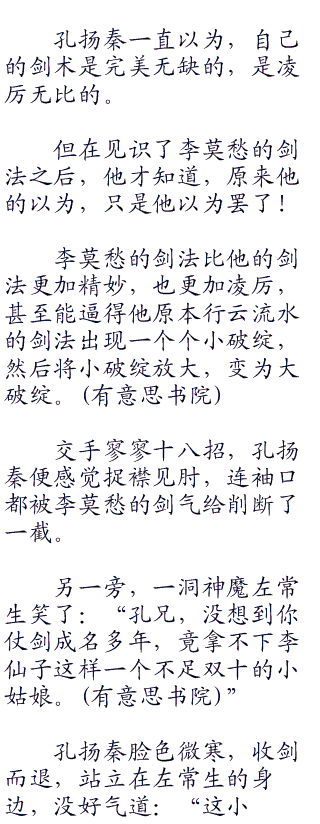 孔扬秦一直以为，自己
的剑术是完美无缺的，是凌
厉无比的。
但在见识了李莫愁的剑
法之后，他才知道，原来他
的以为，只是他以为罢了！
李莫愁的剑法比他的剑
法更加精妙，也更加凌厉，
甚至能逼得他原本行云流水
的剑法出现一个个小破绽，
然后将小破绽放大，变为大
破绽。(有意思书院)
交手寥寥十八招，孔扬
秦便感觉捉襟见肘，连袖口
都被李莫愁的剑气给削断了
一截。
另一旁，一洞神魔左常
生笑了：“孔兄，没想到你
仗剑成名多年，竟拿不下李
仙子这样一个不足双十的小
姑娘。(有意思书院)”
孔扬秦脸色微寒，收剑
而退，站立在左常生的身
边，没好气道：“这小